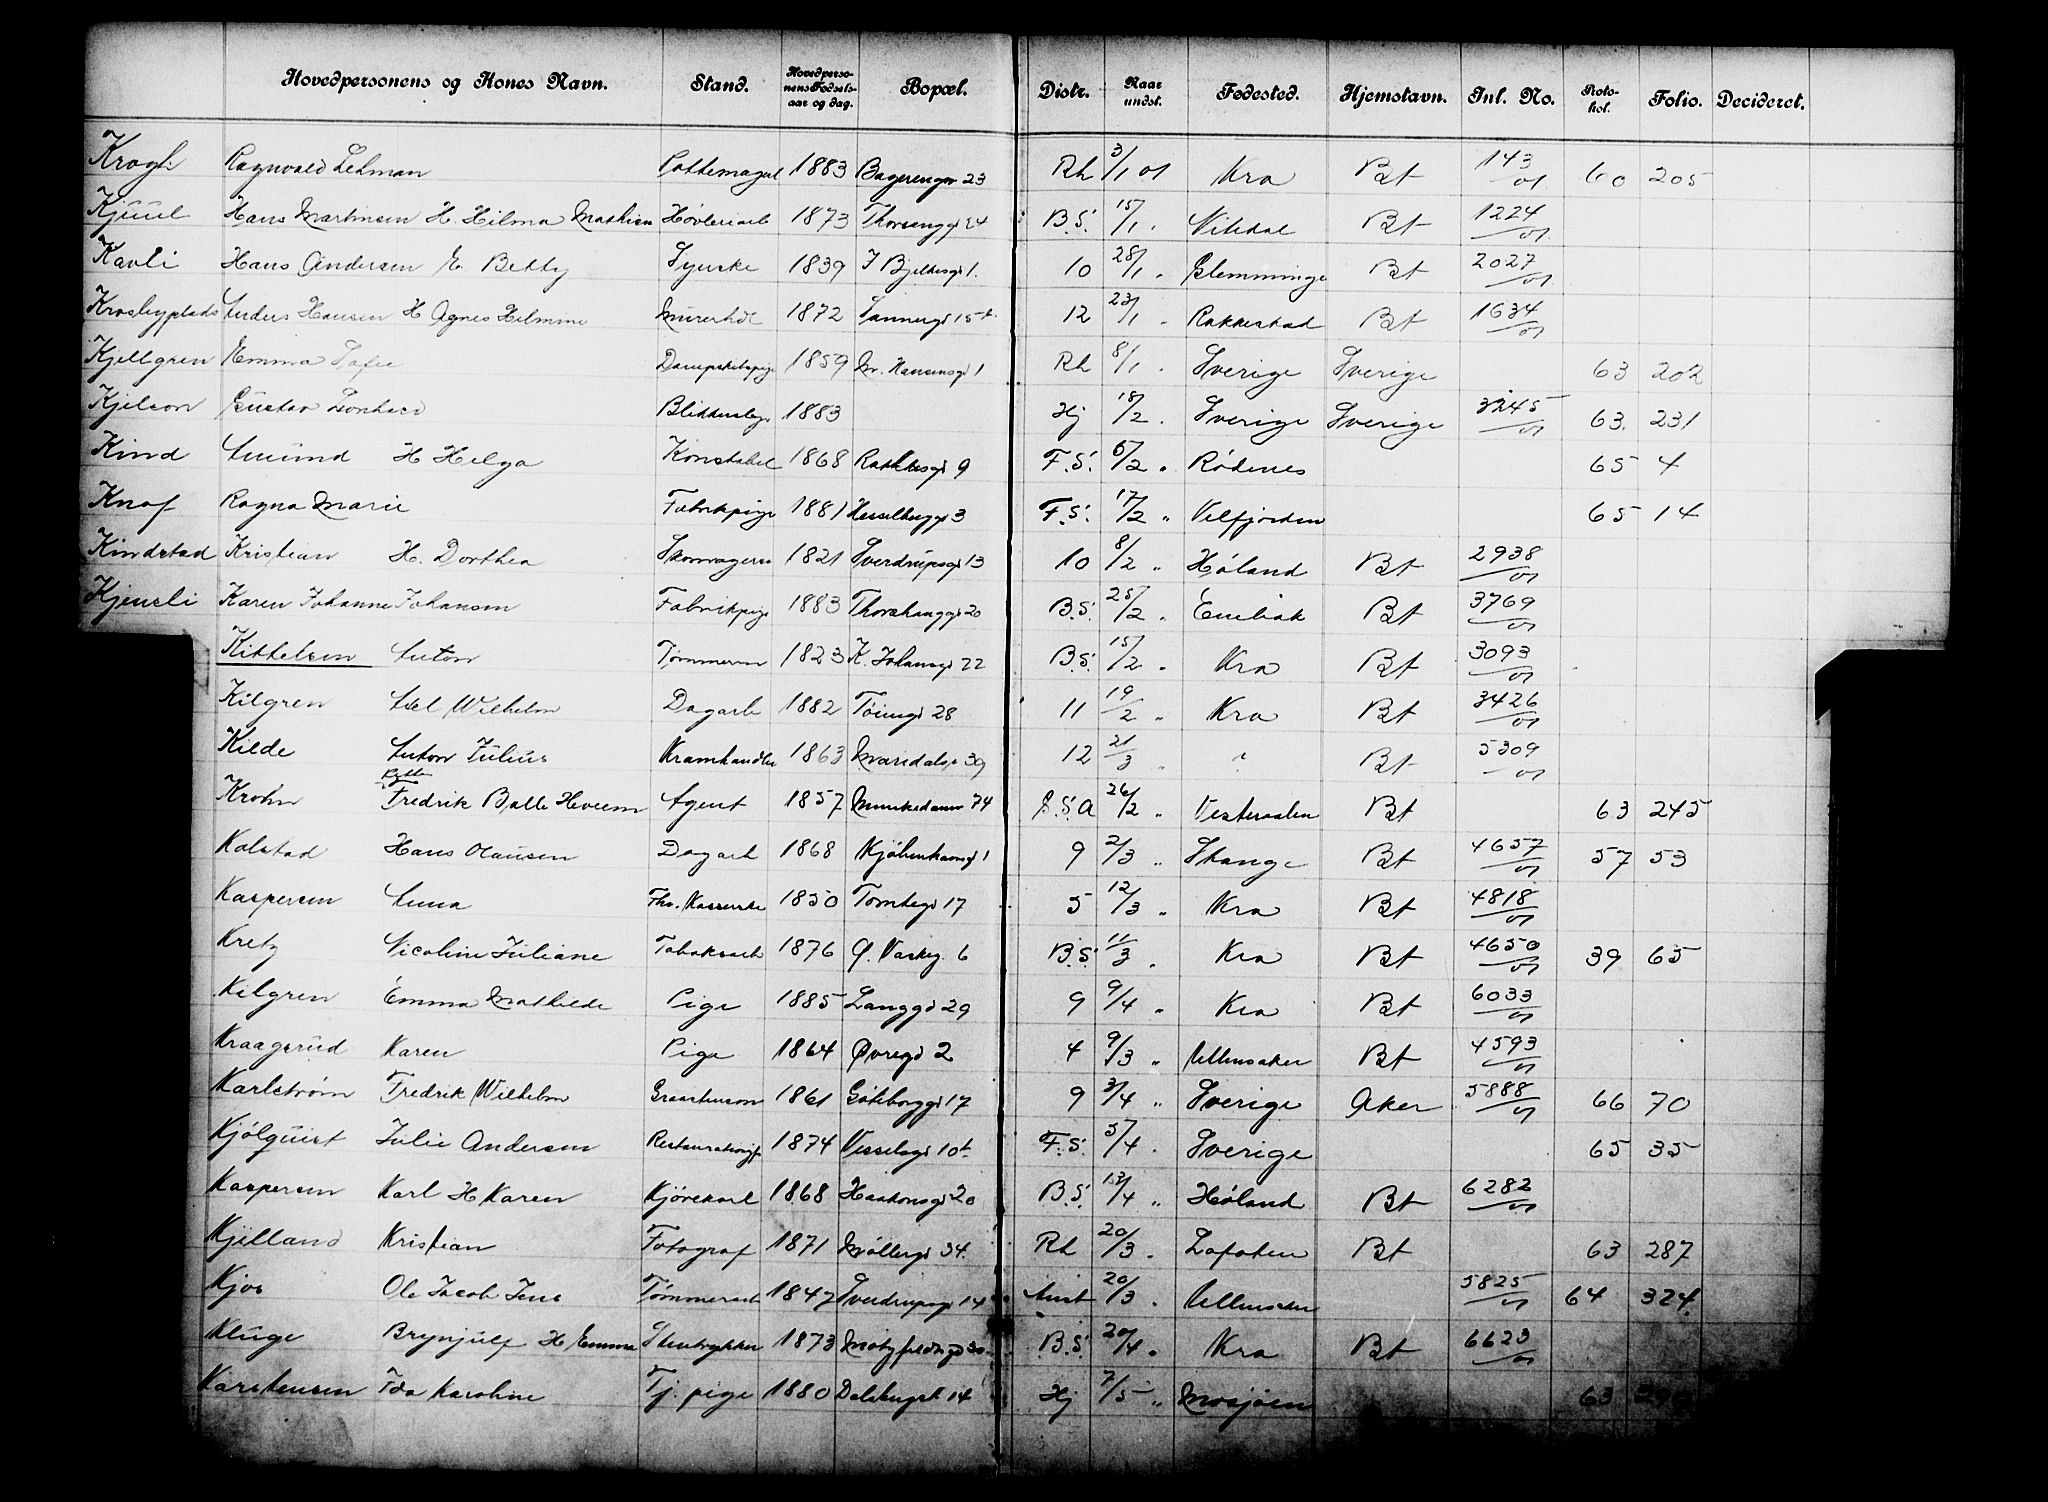 Hovedpersonens og Kones Navn. Stand. Hovedpersonens Fødselsaar og dag. Bopæl. Distr. Naar undst. Fødested. Hjemstavn. Inl. No. Protokol. Folio. Decideret.
Krogh Ragnvald Lehman 1883 23 Rh 3/1 01 Kra Bt 143/01 60 205
Kjuul Hans Martinsen H. Hilma Mathisen Høvleriarb 1873 24 B.S. 15/1 " Nitedal Bt 1224/01
Kavli Hans Andersen E. Betty Syerske 1839 J Bjelkesgd 1. 10 28/1 " Glemminge Bt 2027/01
Krosbyplads Anders Hansen H Agnes Helmine 1872 Sannergd 15 b. 12 23/1 " Rakkestad Bt 1634/01
Kjellgren Emma Sofie 1859 M. Hansensgd 1 Rh 8/1 " Sverige Sverige 63 202
Kjelson Gustav Leonhard Blikkenslag 1883 Hj 18/2 " Sverige Sverige 3245/01 63. 231
Kind Amund H Helga Konstabel 1868 Rathkesgd 9 F.S. 6/2 " Rødenes 65 4
Knof Ragna Marie Fabrikpige 1881 Hesselbergsgd 3 F.S. 17/2 " Velfjorden 65 14
Kindstad Kristian H. Dorthea 1821 Sverdrupsgd 13 10 8/2 " Høland Bt 2938/01
Kjensli Karen Johanne Johansen Fabrikpige 1883 Thorshauggd 20 B.S. 25/2 " Enebak Bt 3769/01
Kittelsen Anton Tømmerm 1823 K. Johansgd 22 B.S. 15/2 " Kra Bt 3093/01
Kilgren Axel Wilhelm Dagarb 1882 Tøiengd 28 11 19/2 " Kra Bt 3426/01
Kilde Anton Julius Kramhandler 1863 Maridalsv 39 12 21/3 " " Bt 5309/01
Krohn Fredrik Balle Heveem Agent 1857 Munkedamsv 74 S.S.A 26/2 " Vesteraalen Bt 63 245
Kolstad Hans Olausen Dagarb 1868 Kjøbenhavnsgd 1 9 2/3 " Stange Bt 4657/01 57 53
Kaspersen Anna Fhv. Kasserske 1850 Tomtegd 17 5 12/3 " Kra Bt 4818/01
Kretz Nicoline Juliane Tobaksarb 1876 Ø. Vaskeg. 6 B.S. 11/3 " Kra Bt 4650/01 39 65
Kilgren Emma Mathilde Pige 1885 Langgd 29 9 9/4 " Kra Bt 6033/01
Kraagerud Karen Pige 1864 Øvregd 2 4 9/3 " Ullensaker Bt 4593/01
Karlstrøm Fredrik Wilhelm 1861 Gøteborggd 17 9 3/4 " Sverige Aker 5888/01 66 70
Kjølquist Julie Andersen 1874 Vesselsgd 10 b F.S. 5/4 " Sverige 65 35
Kaspersen Karl H Karen Kjørekarl 1868 Haakonsgd 20 B.S. 13/4 " Høland Bt 6282/01
Kjelland Kristian Fotograf 1871 Møllergd 34. Rh 20/3 " Lofoten Bt 63 287
Kjos Ole Jacob Jens Tømmerarb 1847 Sverdrupsgd 14 Amt 20/3 " Ullensaker 5825/01 64 324.
Kluge Brynjulf H Emma Stentrykker 1873 B.S. 20/4 " Kra Bt 6623/01
Karstensen Ida Karoline Tj. pige 1880 14 Hj 7/5 " Mosjøen 63